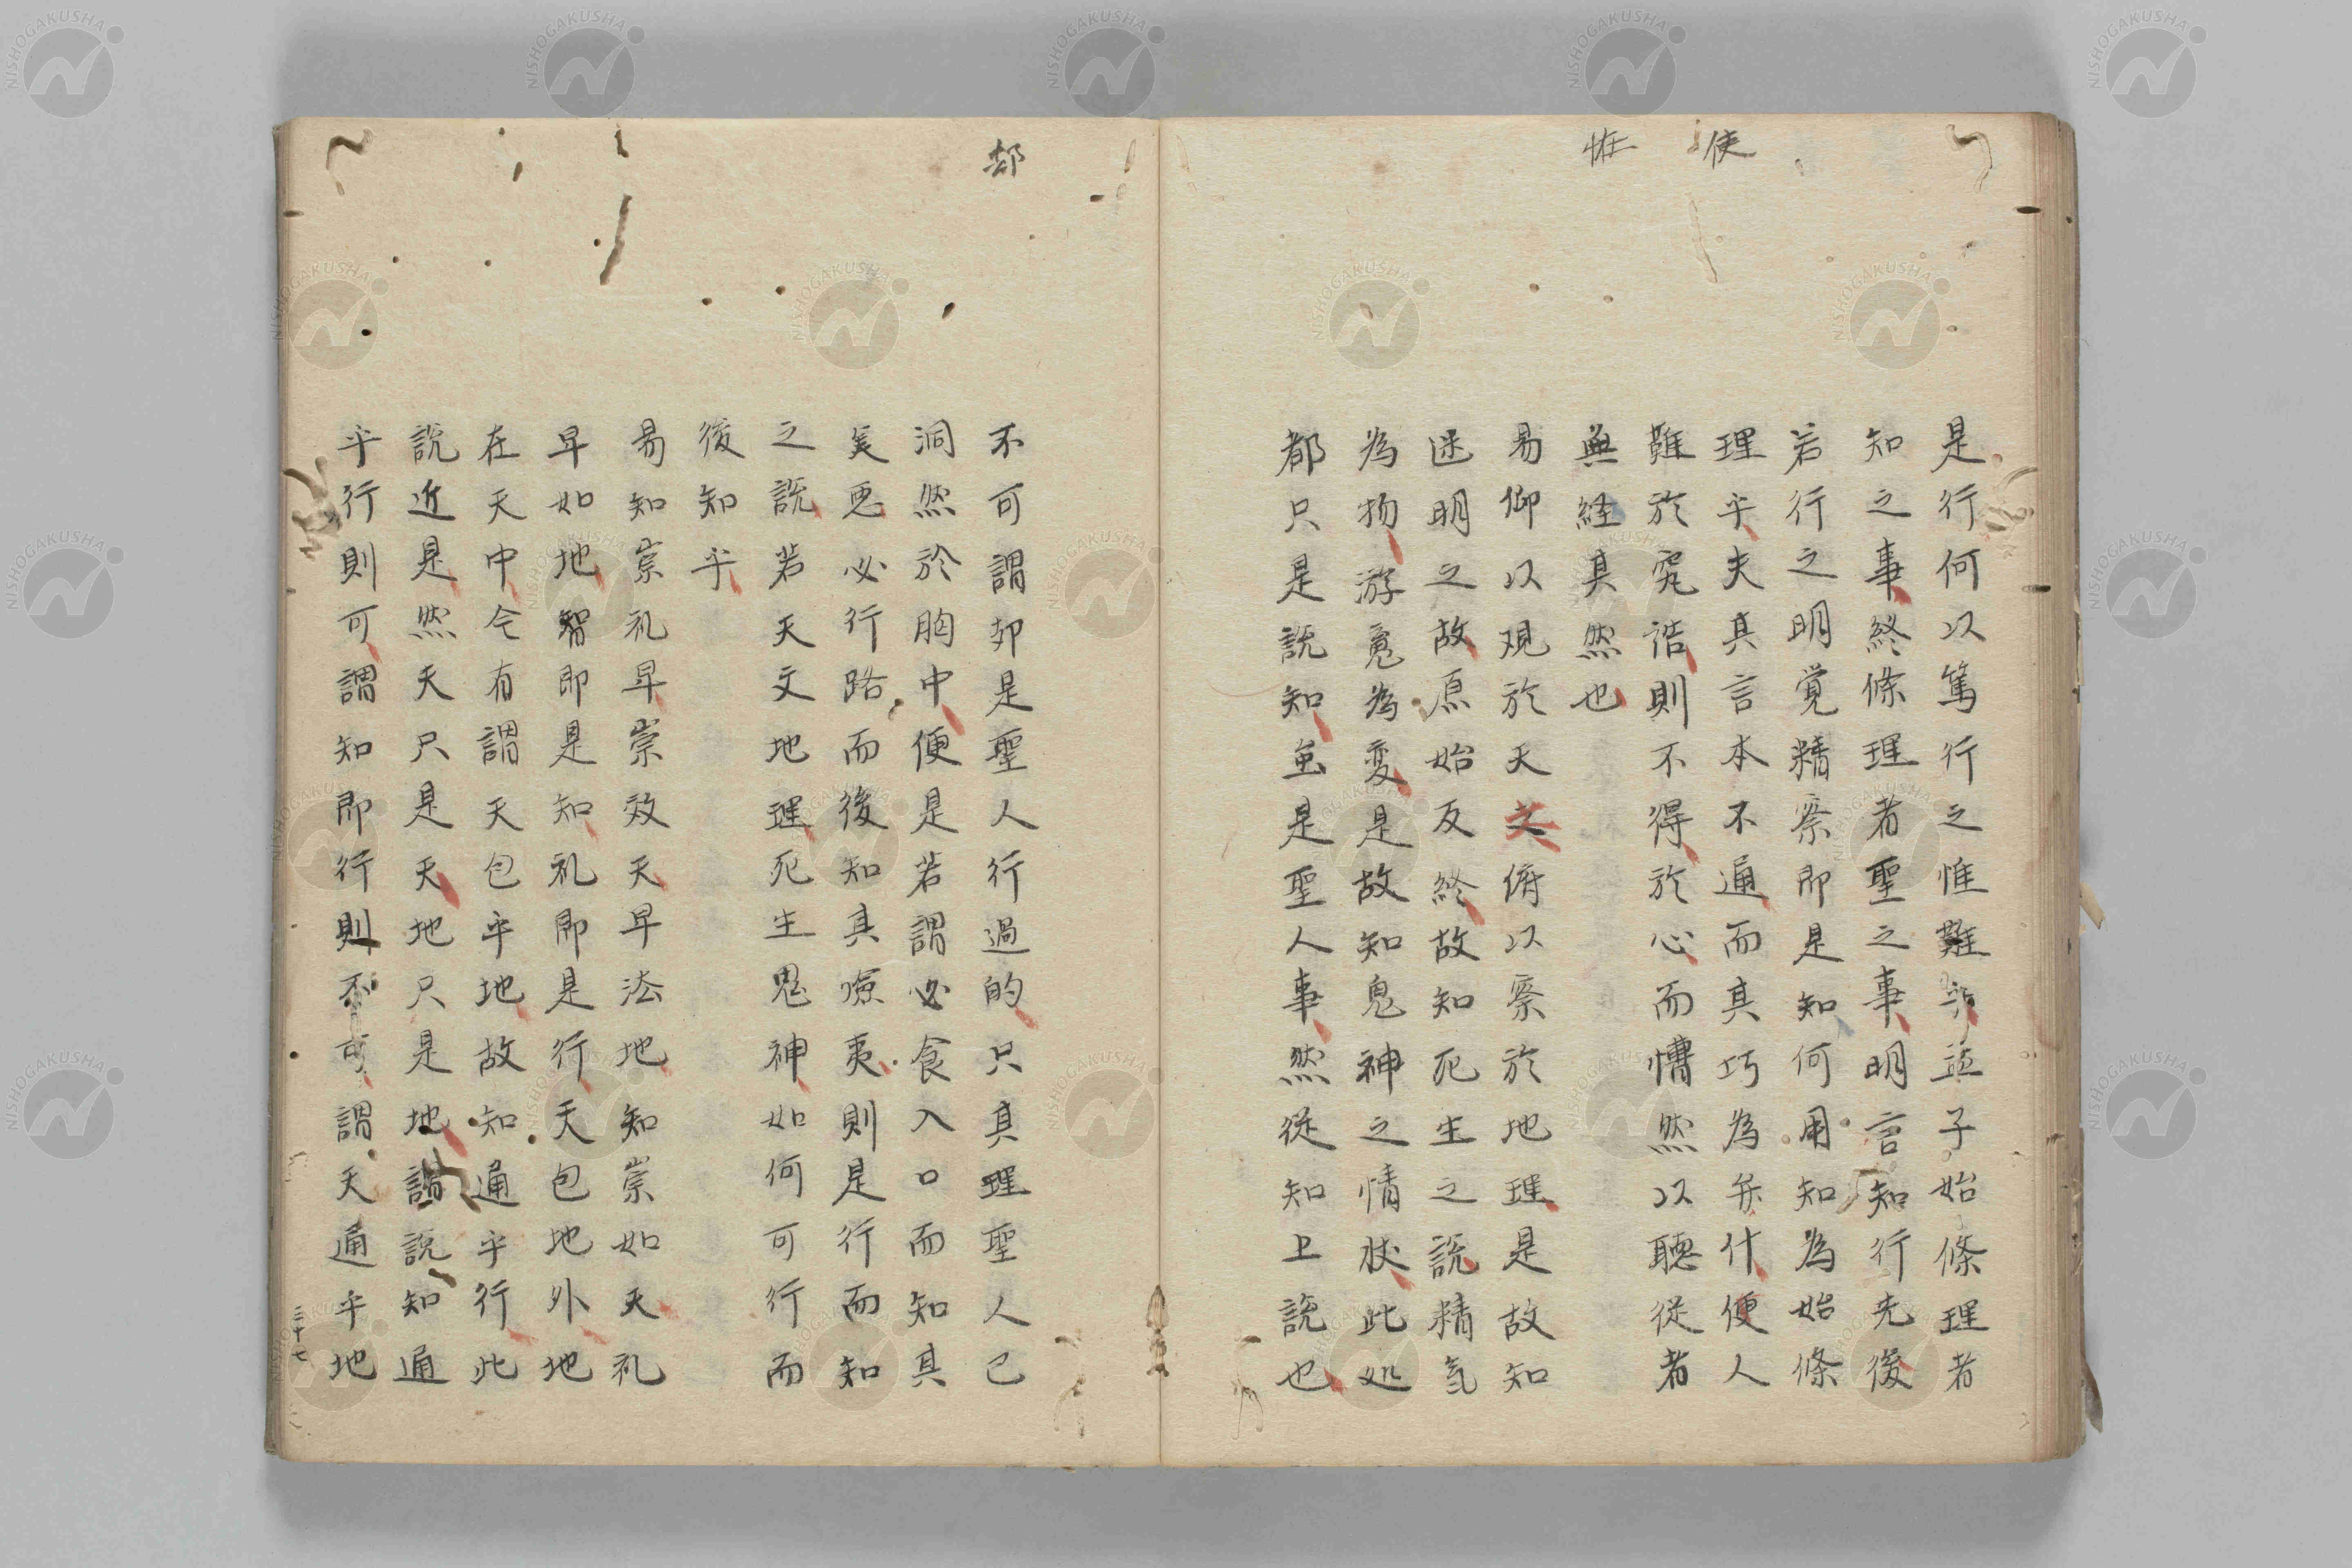 使
恠
是行何以篤行之惟難乎孟子始條理者
知之事終條理者聖之事明言知行先後
若行之明覚精察即是知何用知為始條
理乎夫其言本不通而其巧為弁什便人
難於究詰則不得於心而懵然以聽従者
無経其然也
易仰以観於天文俯以察於地理是故知
迷明之故原始反終故知死生之説精気
為物游䰟為変是故知鬼神之情状此処
都只是説知並是聖人事然従知上説也
郄
不可謂却是聖人行過的只其理聖人已
洞然於胸中便是若謂必食入口而知其
美悪必行路而後知其嶮夷則是行而知
之説若天文地理死生鬼神如何可行而
後知乎
易知崇礼早崇效天早法地知崇如天礼
早如地智即是知礼即是行天包地外地
在天中今有謂天包乎地故知通乎行此
説近是然天只是天地只是地謂説知通
乎行則可謂知即行則不可謂天通乎地
三十七
NISHOGAKUSHA